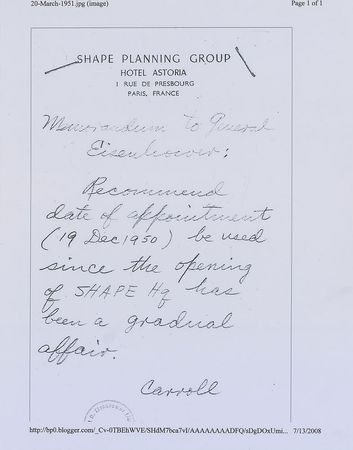 20-March-1951.jpg (image) Page 1 of 1
SHAPE PLANNING GROUP
HOTEL ASTORIA
1 RUE DE PRESBOURG
PARIS, FRANCE
Memorandum to General
Eisenhower:
Recommend
date of appointment
(19 Dec 1950) be used
since the opening
of SHAPE Hq has
been a gradual
affair.
Carroll
http://bp0.blogger.com/_Cv-0TBEhWVE/SHdM7bca7vI/AAAAAAAADFQ/sDgDOxUmi... 7/13/2008